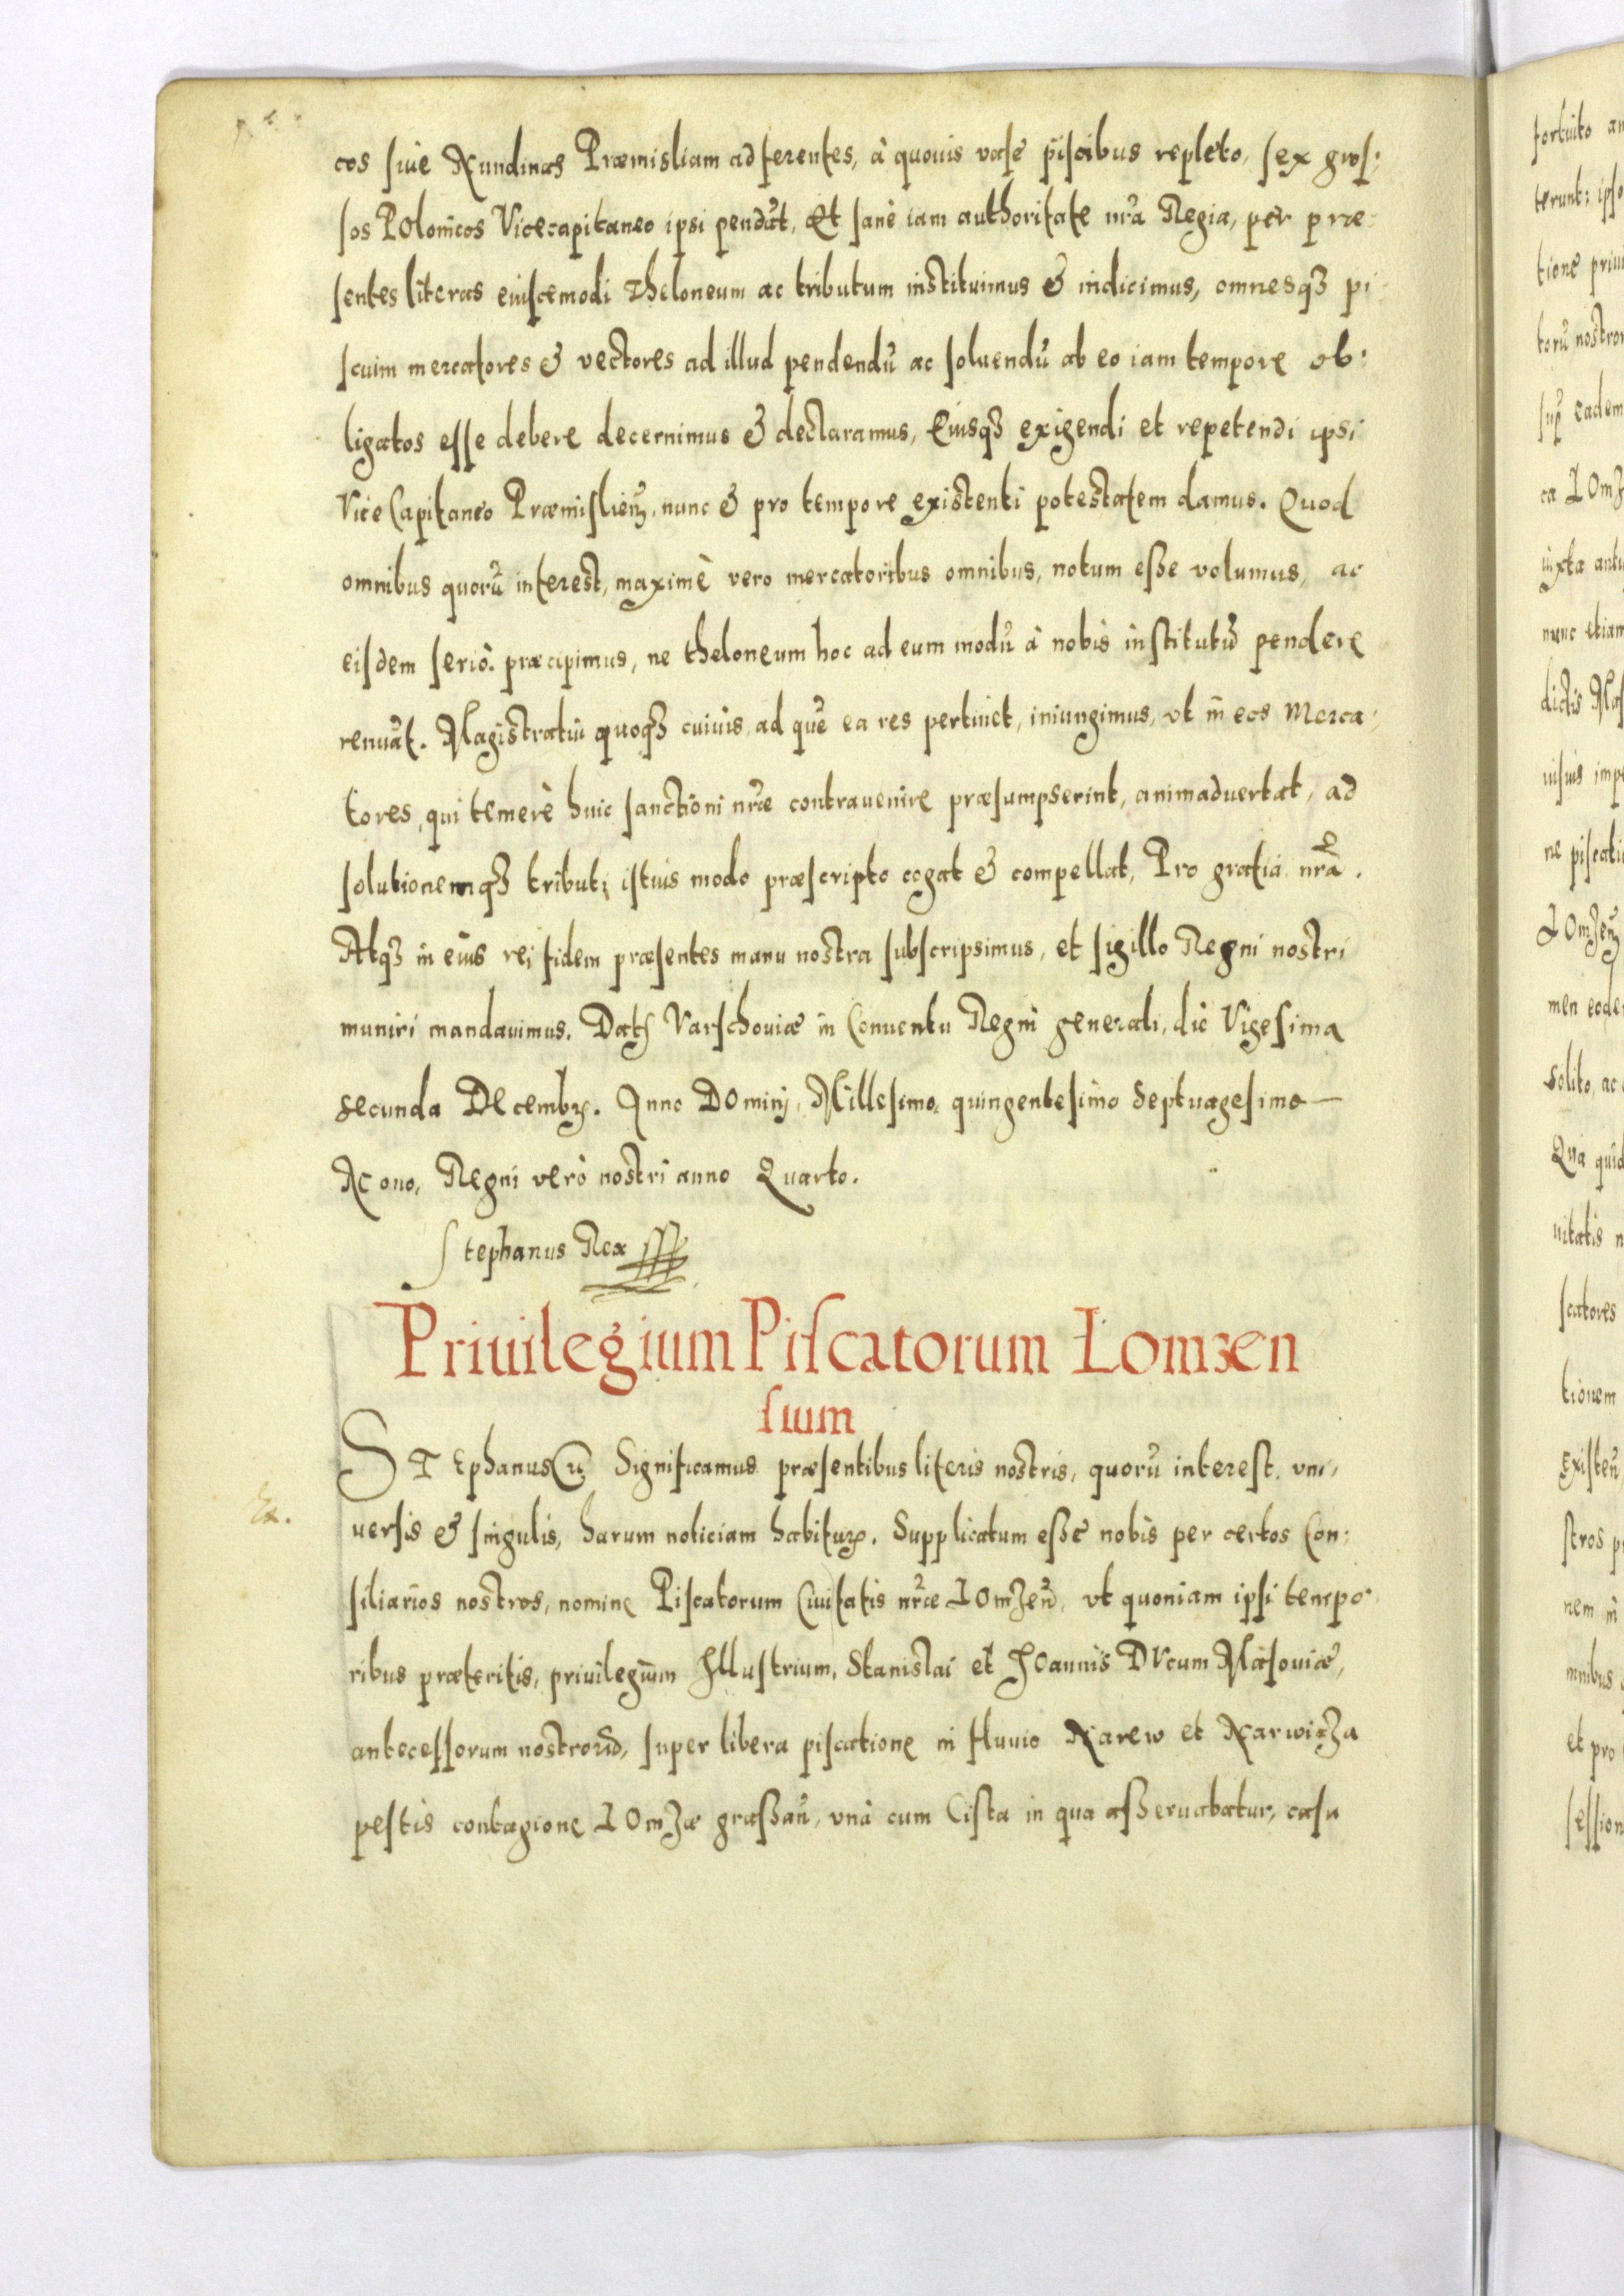 cos siue Nundinas Præmisliam adferentes, à quouis vase piscibus repleto, sex gros:
sos Polonicos Vicecapitaneo ipsi pendãt, Et sanè iam authoritate nr̃a Regia, per præ-
sentes literas eiuscemodi theloneum ac tributum instituimus & indicimus, omnesqȝ pi-
scium mercatores & vectores ad illud pendendũ ac soluendũ ab eo iam tempore ob:
ligatos esse debere decernimus & declaramus, Eiusqȝ exigendi et repetendi ipsi
Vice Capitaneo Præmislieñ, nunc & pro tempore existenti potestatem damus. Quod
omnibus quorũ interest, maximè vero mercatoribus omnibus, notum esse volumus, ac
eisdem seriò præcipimus, ne theloneum hoc ad eum modũ à nobis institutũ pendere
renuãt. Magistratui quoqȝ cuiuis, ad quẽ ea res pertinet, iniungimus, vt in eos Merca:
tores, qui temerè huic sanctioni nr̃æ contrauenire præsumpserint, animaduertat, ad
solutionemqȝ tributi istius modo præscripto cogat & compellat, Pro gratia nr̃a.
Atqȝ in eius rei fidem præsentes manu nostra subscripsimus, et sigillo Regni nostri
muniri mandauimus. Datȝ Varschouiæ in Conuentu Regni generali, die Vigesima
secunda Decembꝝ. Anno Domini, Millesimo, quingentesimo Septuagesimo —
Nono, Regni verò nostri anno Quarto.
Stephanus Rex
Priuilegium Piscatorum Lomzen
sium
STephanus Significamus præsentibus literis nostris, quorũ interest, vni,
uersis & singulis, harum noticiam habituꝝ. Supplicatum esse nobis per certos Con:
siliarios nostros, nomine Piscatorum Ciuitatis nr̃æ Lomzeñ, vt quoniam ipsi tempo-
ribus præteritis, priuilegium Illustrium, Stanislai et Joannis Ducum Masouiæ,
antecessorum nostrorũ, super libera piscatione in fluuio Narew et Narwicza
pestis contagione Lomzæ grassañ, vnà cum Cista in qua asseruabatur, casu
Ex.